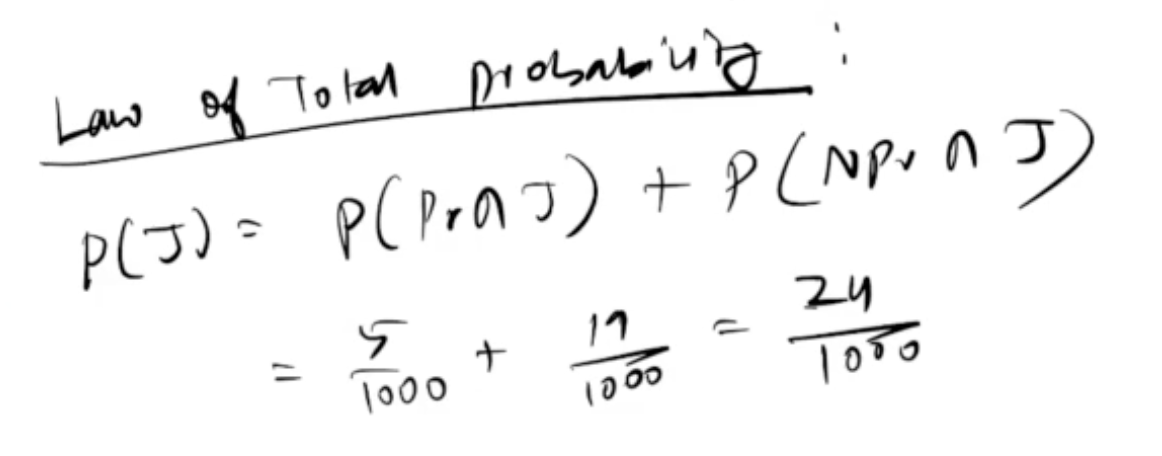 Law of Total Probability :
P(J) = P(Pr ∩ J) + P(NPr ∩ J)
= 5/1000 + 19/1000 = 24/1000